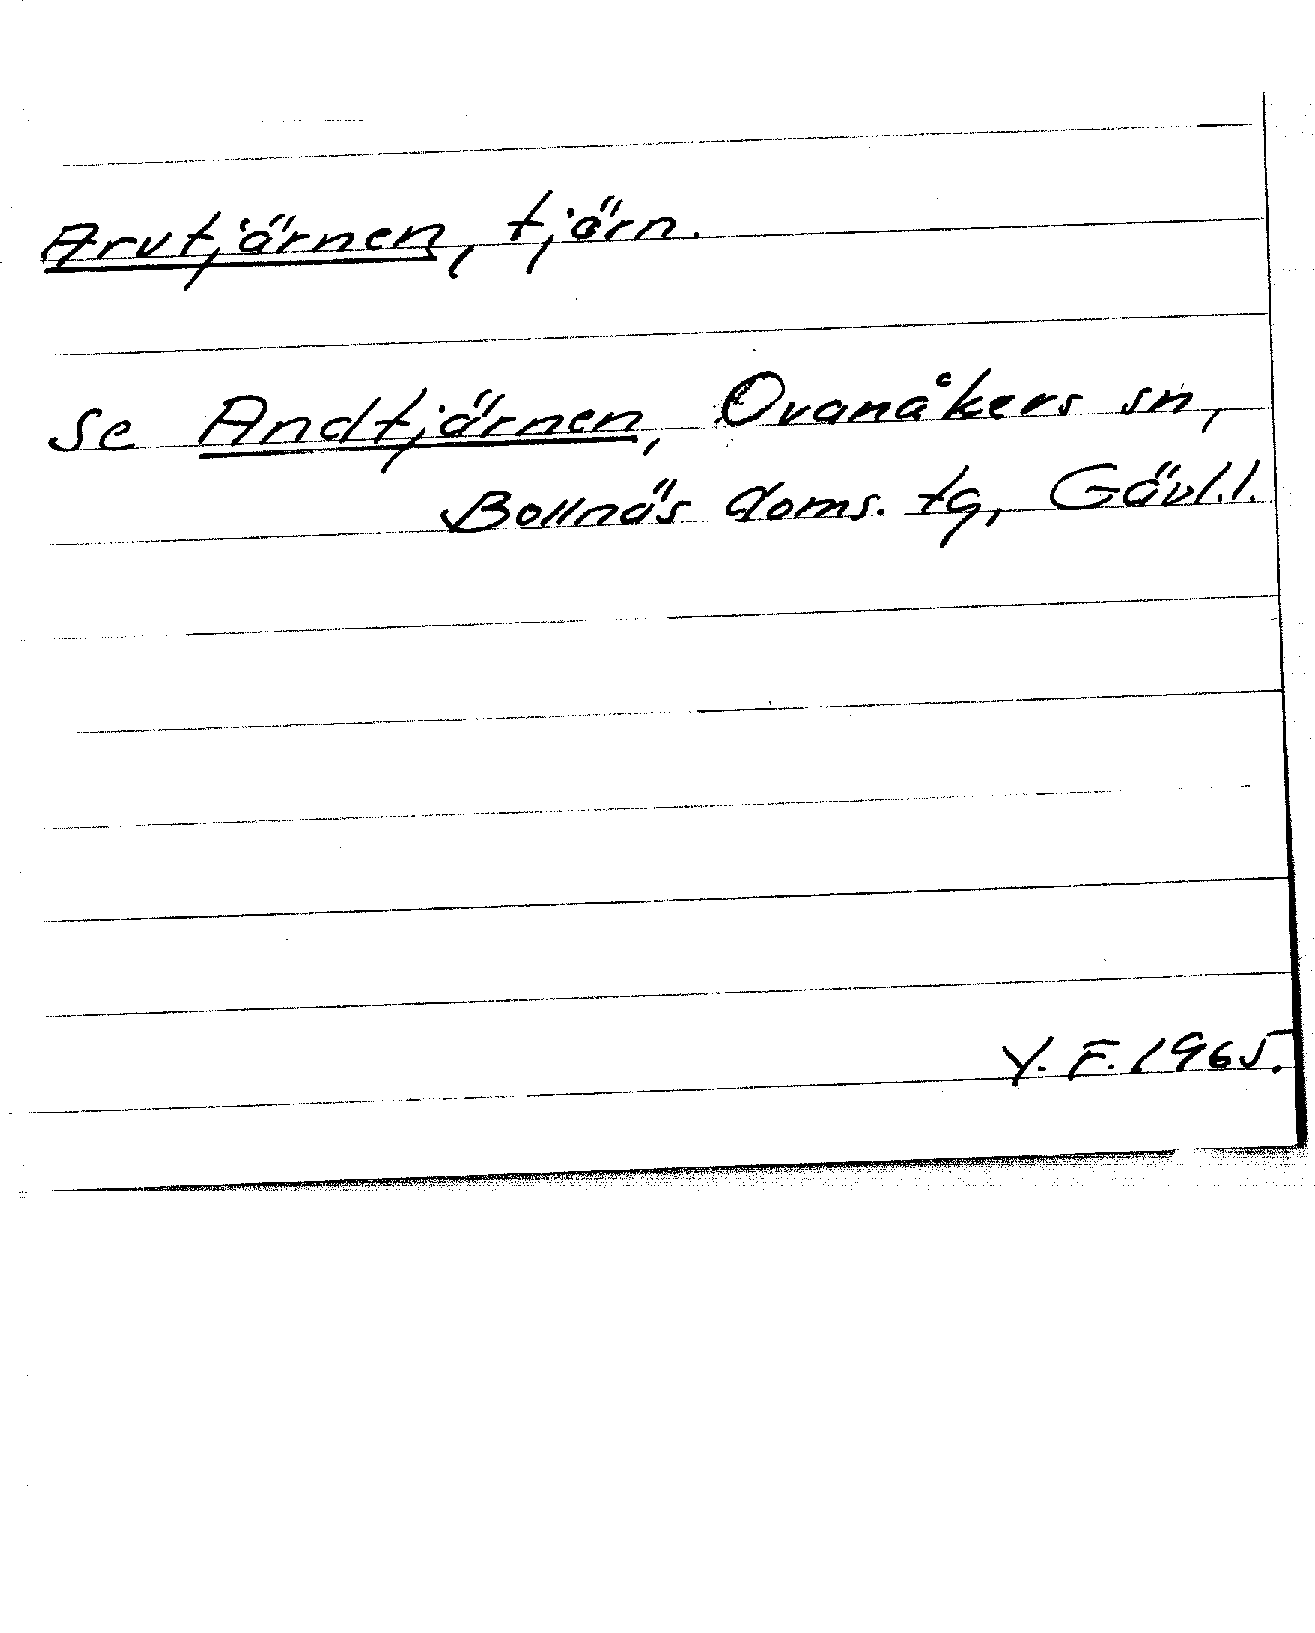 Arvtjärnen, tjärn.
Se Andtjärnen, Ovanåkers sn,
Bollnäs doms. tg, Gävl.l.
Y. F. 1965.